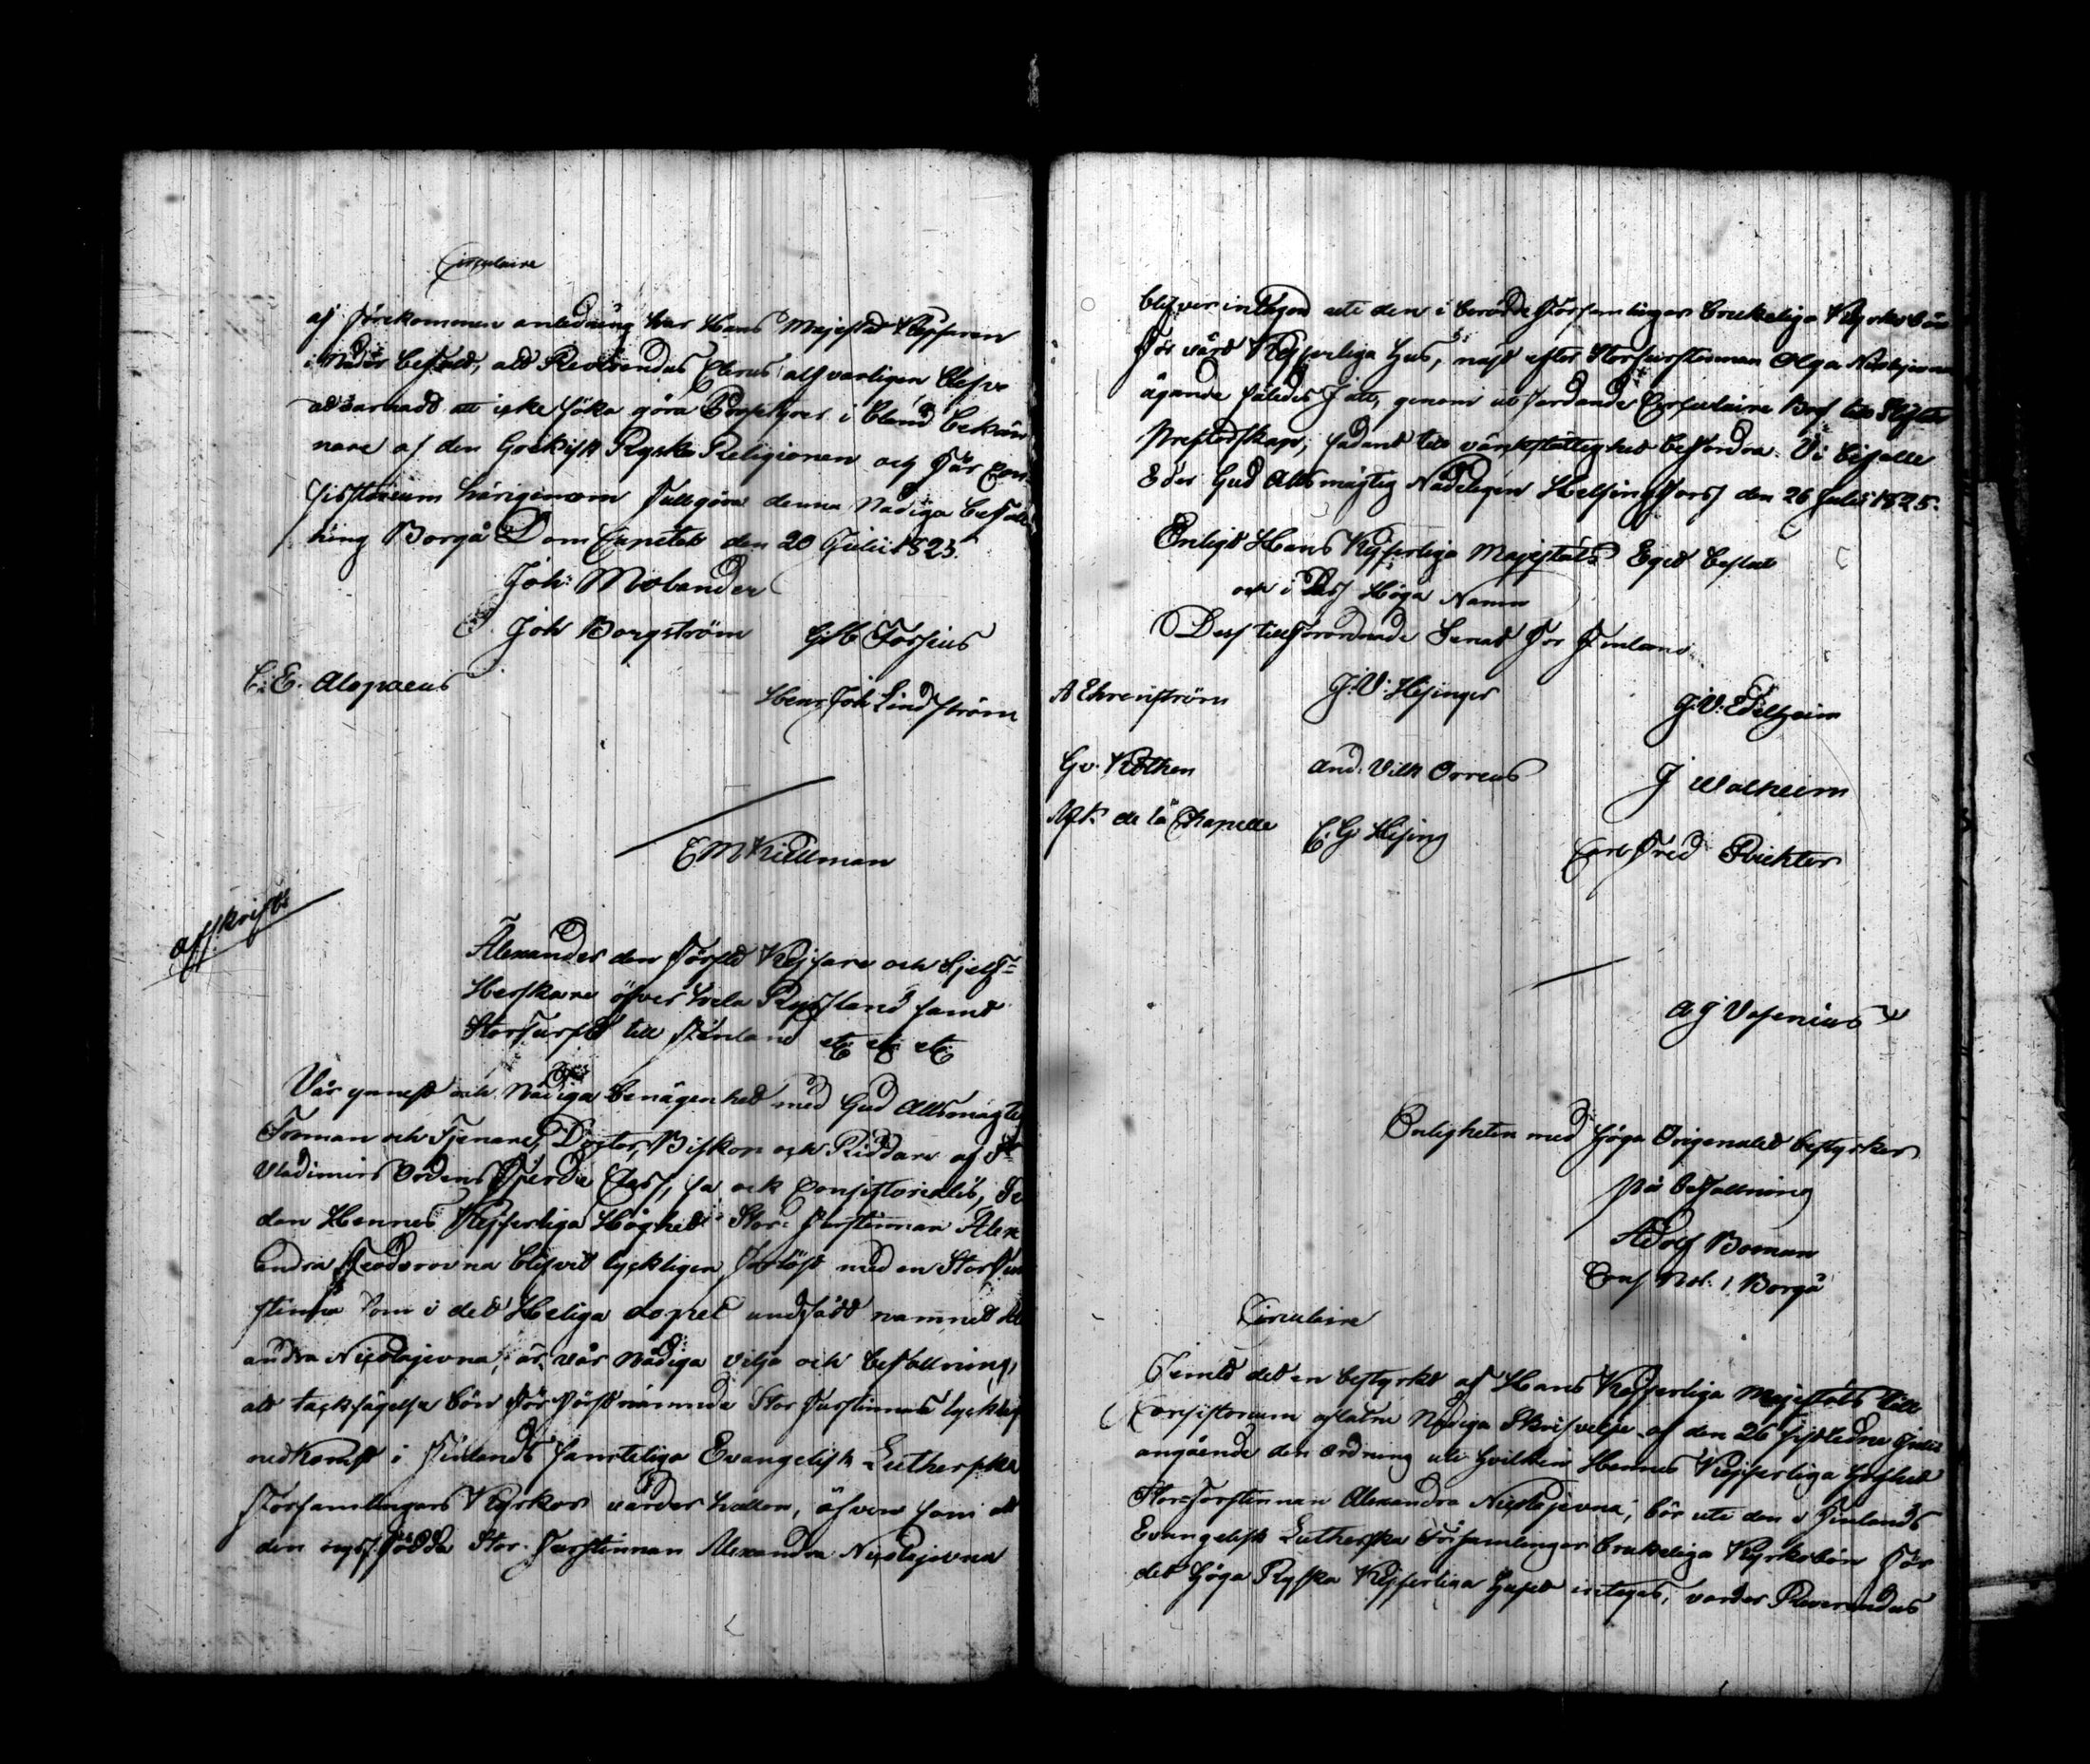 Circulaire
af förekommen anledning har Hans Majestät Kejsaren
i Nåder befald, att Reverendus Clerus alfvarligen blefve
advarnadt att icke söka göra Proselyter i bland bekän
nare af den Grekisk Ryska Religionen och får Con
sistorium härigenom fullgöra denna Nådiga befall
ning Borgå Dom Capitel den 20 Julii 1825.
Joh: Molander
Joh Borgström Forsius
C. E. Alopaeus
Henr Joh Lindström
E M Kiellman
Afskrift
Alexander den Förste Kejsare och Sjelf=
Herskare öfver hela Ryssland samt
Storfurste till Finland etc etc etc
Vår ynnest och Nådiga benägenhet med Gud Allsmägtig
Troman och Tjenare, Doctor, Biskop och Riddare af St
Vladimirs Ordens Fjerde Class, så ock Consistorialis, Se
dan Hennes Kejserliga Höghet Stor- Furstinnan Alex
andra Feodorovna blifvit lyckligen förlöst med en Storfur
stinna som i det Heliga dopet undfådt namnet Al
andra Nicolajevna, är vår Nådiga vilja och befallning,
att tacksägelse bön för förstnämnde Stor Furstinnas lycklig
nedkomst i Finlands samteliga Evangelisk Lutherska
församlingars Kyrkor varder hållen, äfven som att
den nyssfödda Stor- Furstinnan Alexandra Nicolajevna
blifver intagen uti den i berörde Församlingar brukeliga Kyrkobön
för vårt Kejserliga hus, näst efter Storfurstinnan Olga Nicolajevna
ägande således I att, genom utfärdande Circulaire Bref till Stiftets
Presterskap, sådant till värkställighet befordra. Vi befalle
Eder Gud Allsmägtig Nådeligen Helsingfors den 26 Julii 1825.
Enligt Hans Kejserliga Majestäts Eget beslut
och i Dess Höga Namn
Dess tillförordnade Senat för Finland
A Ehrenström J. V. Hisinger G. V. Edelheim
G v. Kothen And. Vilh Orreus J Walheim
de la Chapelle C. G Hising Carl Fred Richter
A J Vasenius
Enligheten med höga Originalet bestyrker
på befallning
Adolf Boman
Cons Not. i Borgå
Circulaire
Jemte det en bestyrkt af Hans Kejserliga Majestäts till
Consistorium aflåtne Nådiga Skrifvelse af den 26 sistledne Julii
angående den ordning uti hvilken Hennes Kejserliga höghet
Stor-Furstinnan Alexandra Nicolajevna, bör uti den i Finlands
Evangelisk Lutherska Församlingar brukeliga Kyrkobön för
det höga Ryska Kejserliga huset intagas, varder Reverendus